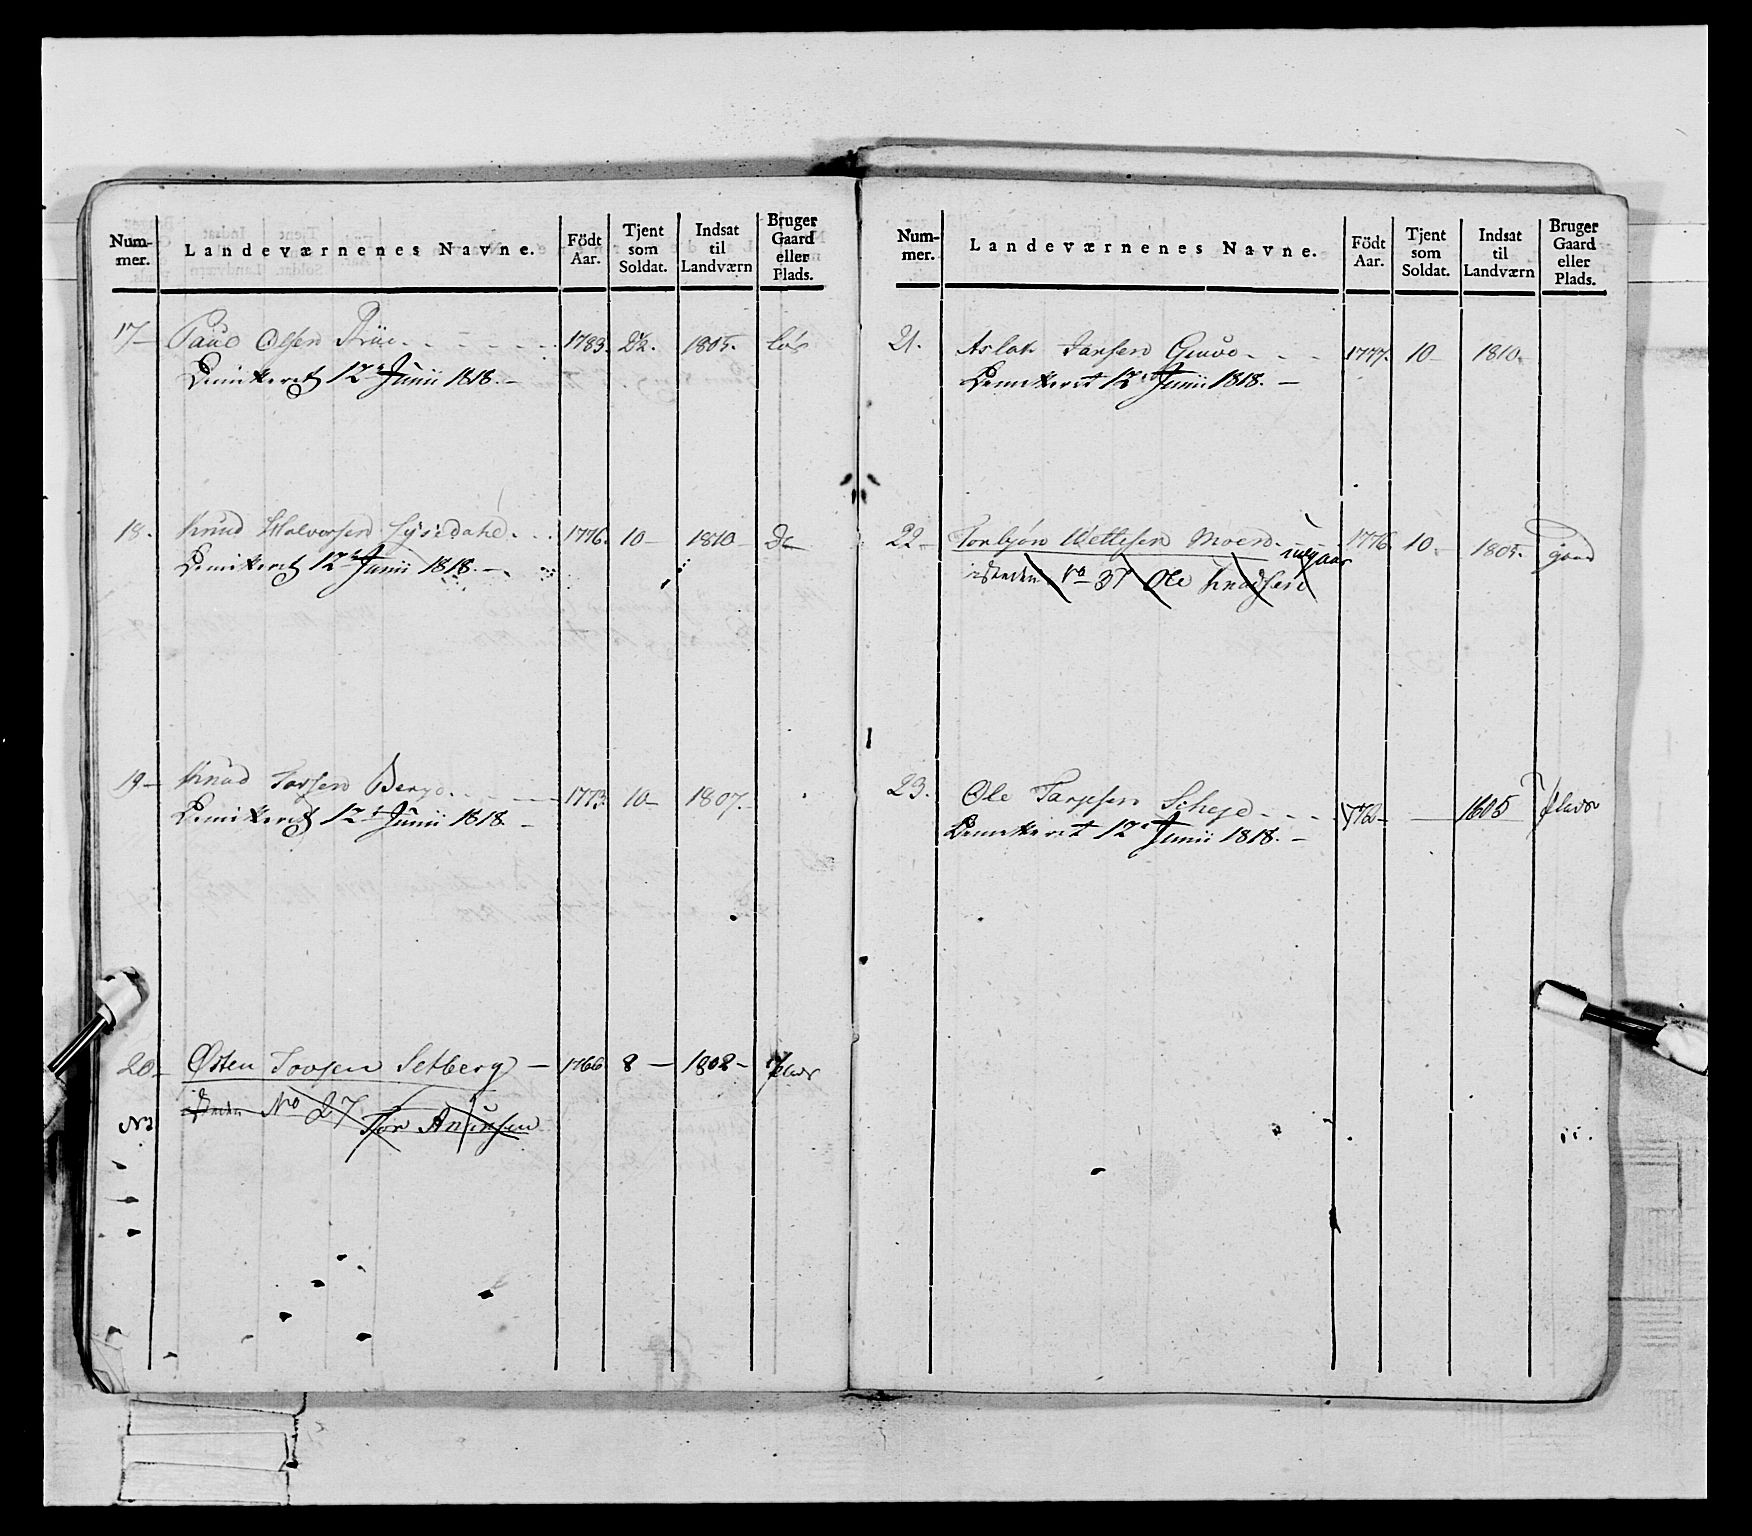 Num-
mer.
Landeværnenes Navne.
Födt
Aar.
Tjent
som
Soldat.
Indsat
til
Landværn
Bruger
Gaard
eller
Plads.
17- Paul Olsen 1783. 1805. løs
Demitteret 12te Junii 1818.-
18. Knud Halvorsen Lysedahl. 1776. 10- 1810- Do
Demitteret 12te Junii 1818.-
19- Knud Torsen Berge. 1773. 10- 1807.
Demitteret 12te Junii 1818.-
20- Østen Tovsen Setberg - 1766 8 - 1802- plads
isteden No 27 Tor
No
Num-
mer.
Landeværnenes Navne.
Födt
Aar.
Tjent
som
Soldat.
Indsat
til
Landværn
Bruger
Gaard
eller
Plads.
21. Aslak Jansen 1777. 10- 1810-
Demitteret 12te Junii 1818.-
22- Torbjøn Wettesen Moen. indgaar 1776. 10- 1805. gaard
isteden No 37 Ole Knudsen
23. Ole Tarjesen 1805 plads
Demitteret 12te Junii 1818.-